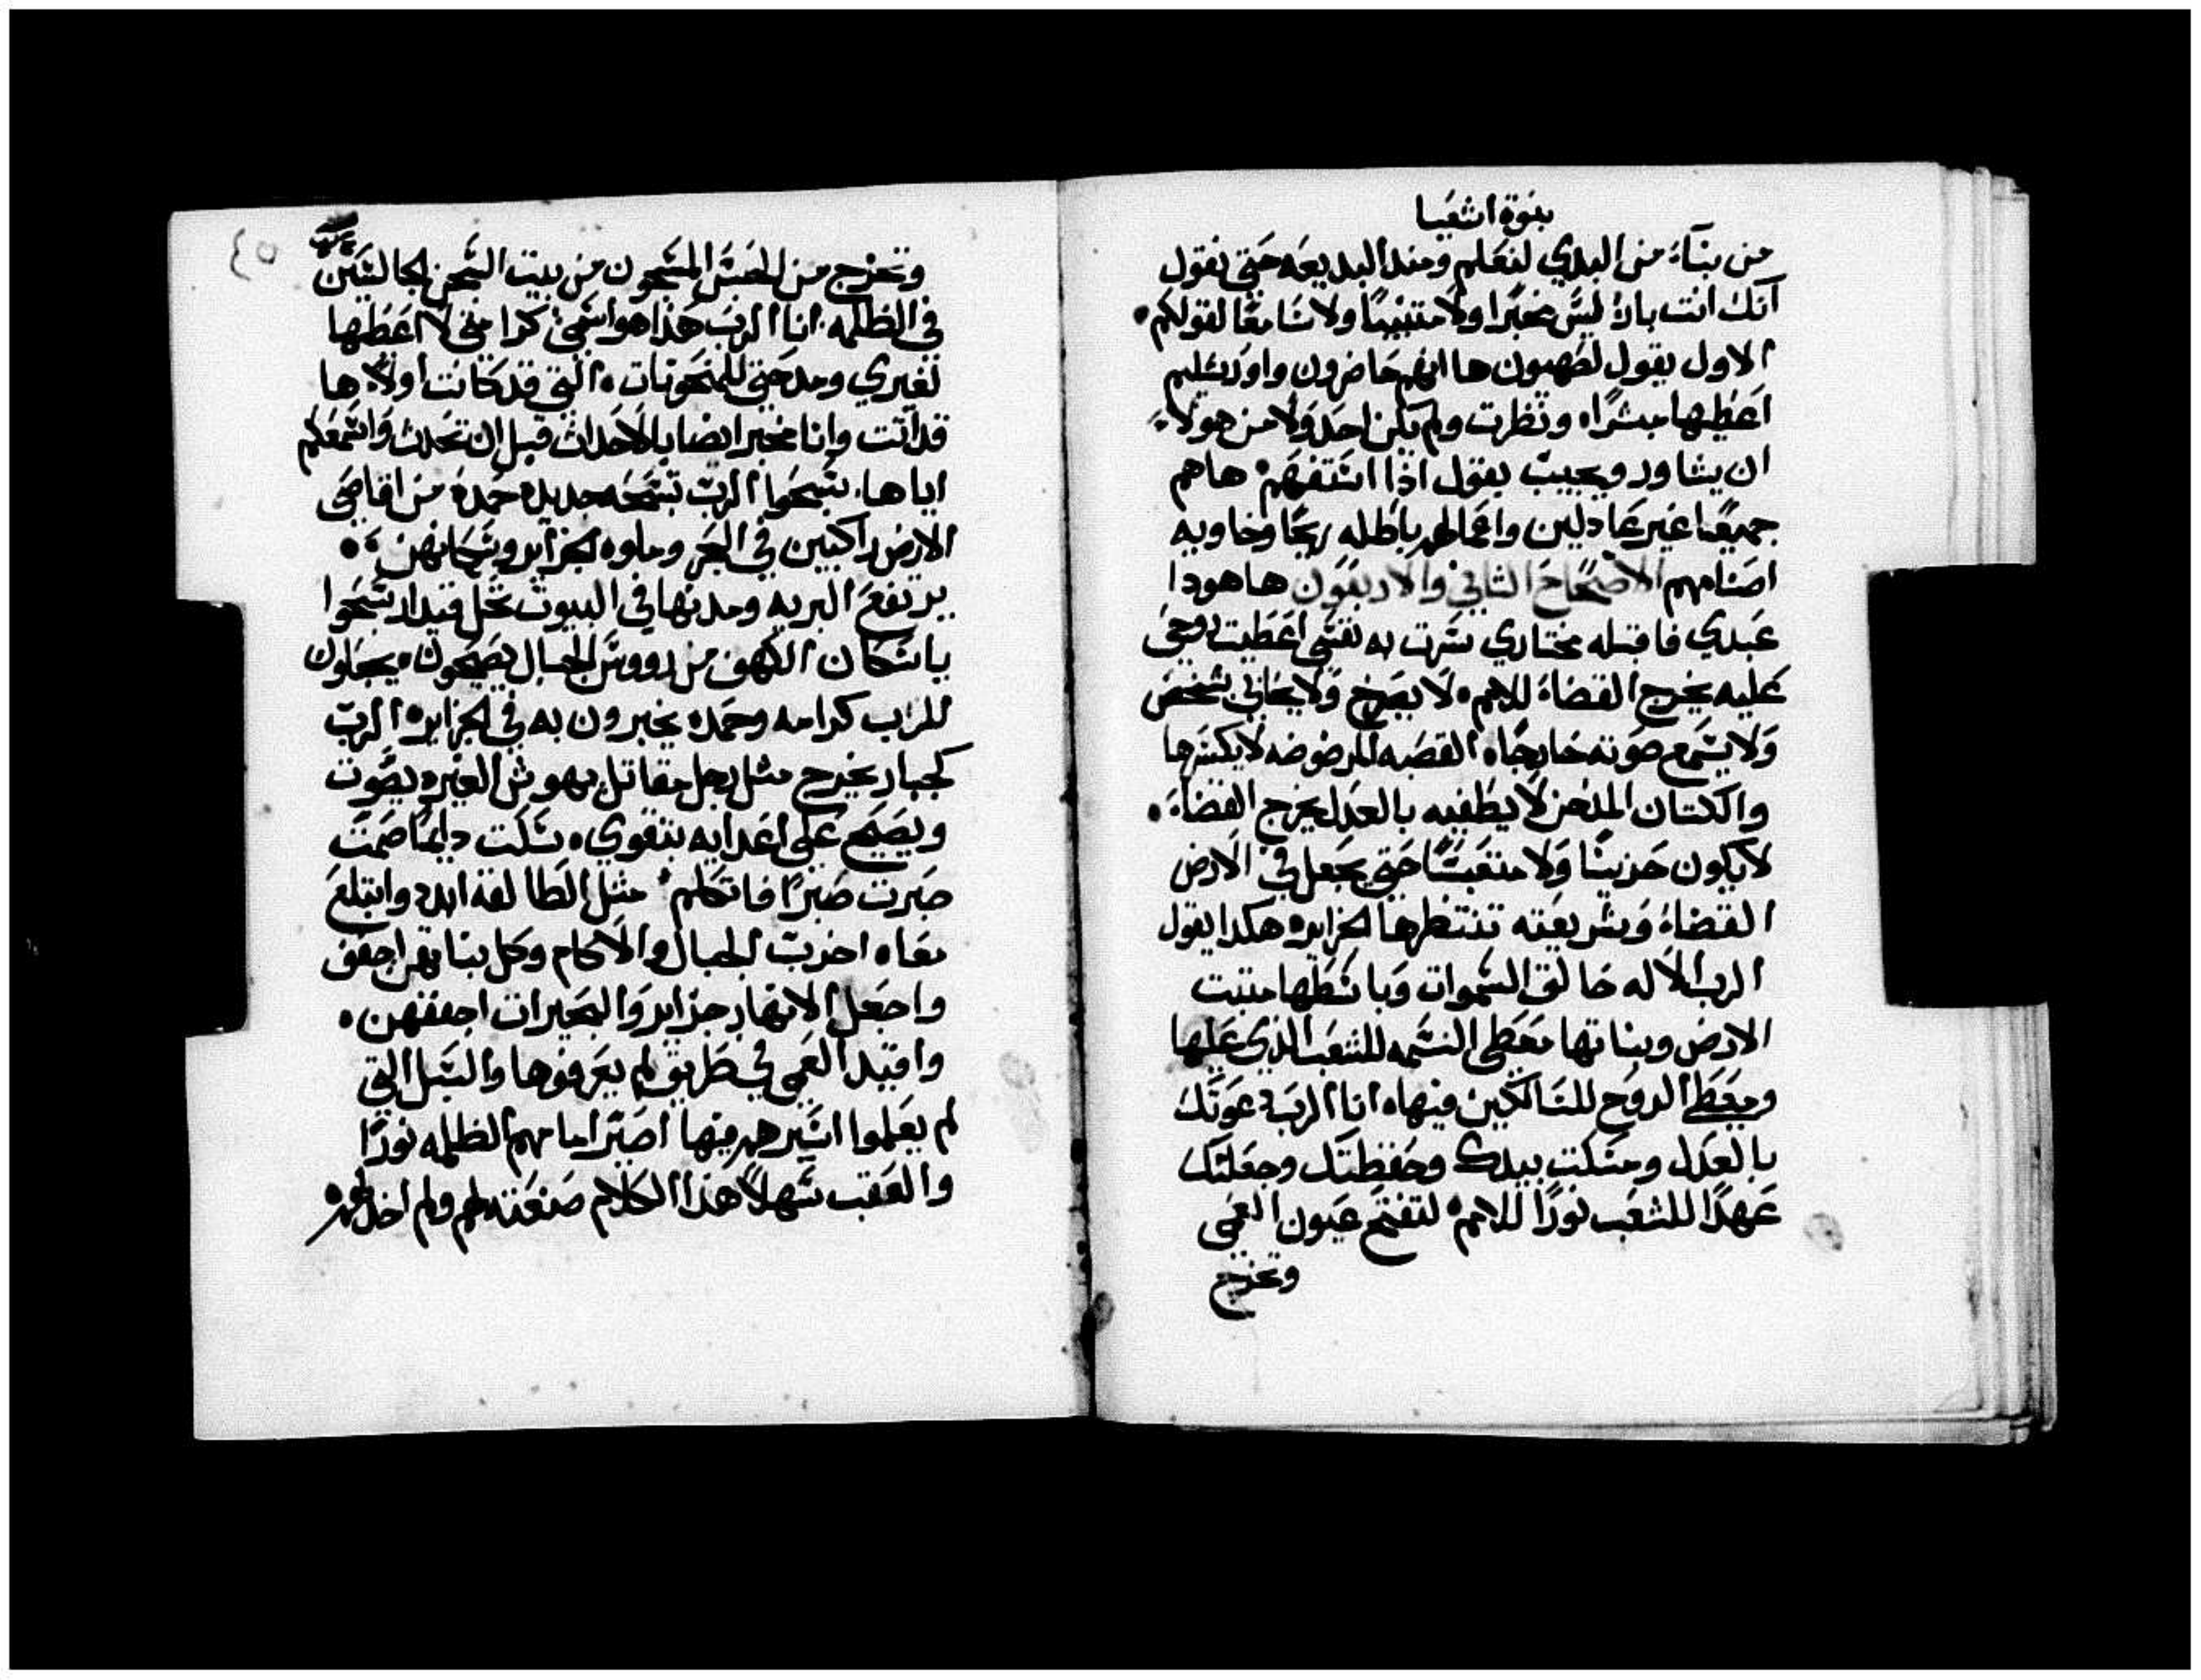 بنوة اشعيا
من بناء من البدي لنعلم ومند البديعه حتي نقول
انك انت بار ليس مخبرا ولا متنبيا ولا سامعا لقولكم
الاول يقول لصهيون ها انهم حاضرون واورشليم
اعطيها مبشرا ونظرت ولم يكن احد ولا من هولاء
ان يشاور ويجيب بقول اذا استفهم هاهم
جميعا غير عادلين واعمالهم باطله ريحا وخاويه
اصنامهم الاصحاح الثاني والاربعون هاهودا
عبدي فاقبله مختاري سرت به نفسي اعطيت روحي
عليه يخرج القضاء للامم لا يصرخ ولا يحابي شخص
ولا يسمع صوته خارجا القصبه المرضوضه لا يكسرها
والكتان المدخن لا يطفيه بالعدل يخرج القضاء
لا يكون حزينا ولا متعبسا حتي يجعل في الارض
القضاء وشريعته تنتظرها الجزاير هكدا يقول
الرب الاله خالق السموات وباسطها متبت
الارض ونباتها معطي النسمه للشعب الذي عليها
ومعطي الروح للسالكين فيها انا الرب دعوتك
بالعدل ومسكت بيدك وحفظتك وجعلتك
عهدا للشعب نورا للامم لتفتح عيون العمي
وتخرج
٤٥
وتخرج من الحبس المسجون من بيت السجن الجالسين
في الظلمه انا الرب هذا هو اسمي كرامتي لا اعطيها
لغيري ومدحتي للمنحوتات التي قد كانت اولا ها
قد اتت وانا مخبر ايضا بالاحداث قبل ان تحدث واسمعكم
اياها سبحوا الرب تسبحه جديده حمده من اقاصي
الارض راكبين في البحر وملوه الجزاير وسكانهن
يرتفع البريه ومدنها في البيوت تحل قيدار سبحوا
ياسكان الكهف من رووس الجبال يصيحون يجعلون
للرب كرامه وحمده يخبرون به في الجزاير الرب
كجبار يخرج مثل رجل مقاتل يهوش الغيره يصوت
ويصيح علي اعدايه يتقوي سكت دايما صمت
صبرت صبرا فاتكلم مثل الطالقه ابدد وابتلع
معا اخرب الجبال والاكام وكل نباتهم اجفف
واجعل الانهار جزاير والبحيرات اجففهن
واقيد العمي في طريق لم يعرفوها والسبل التي
لم يعلموا اسيرهم فيها اصير امامهم الظلمه نورا
والعقب سهلا هذا الكلام صنعته لهم ولم اخذلهم